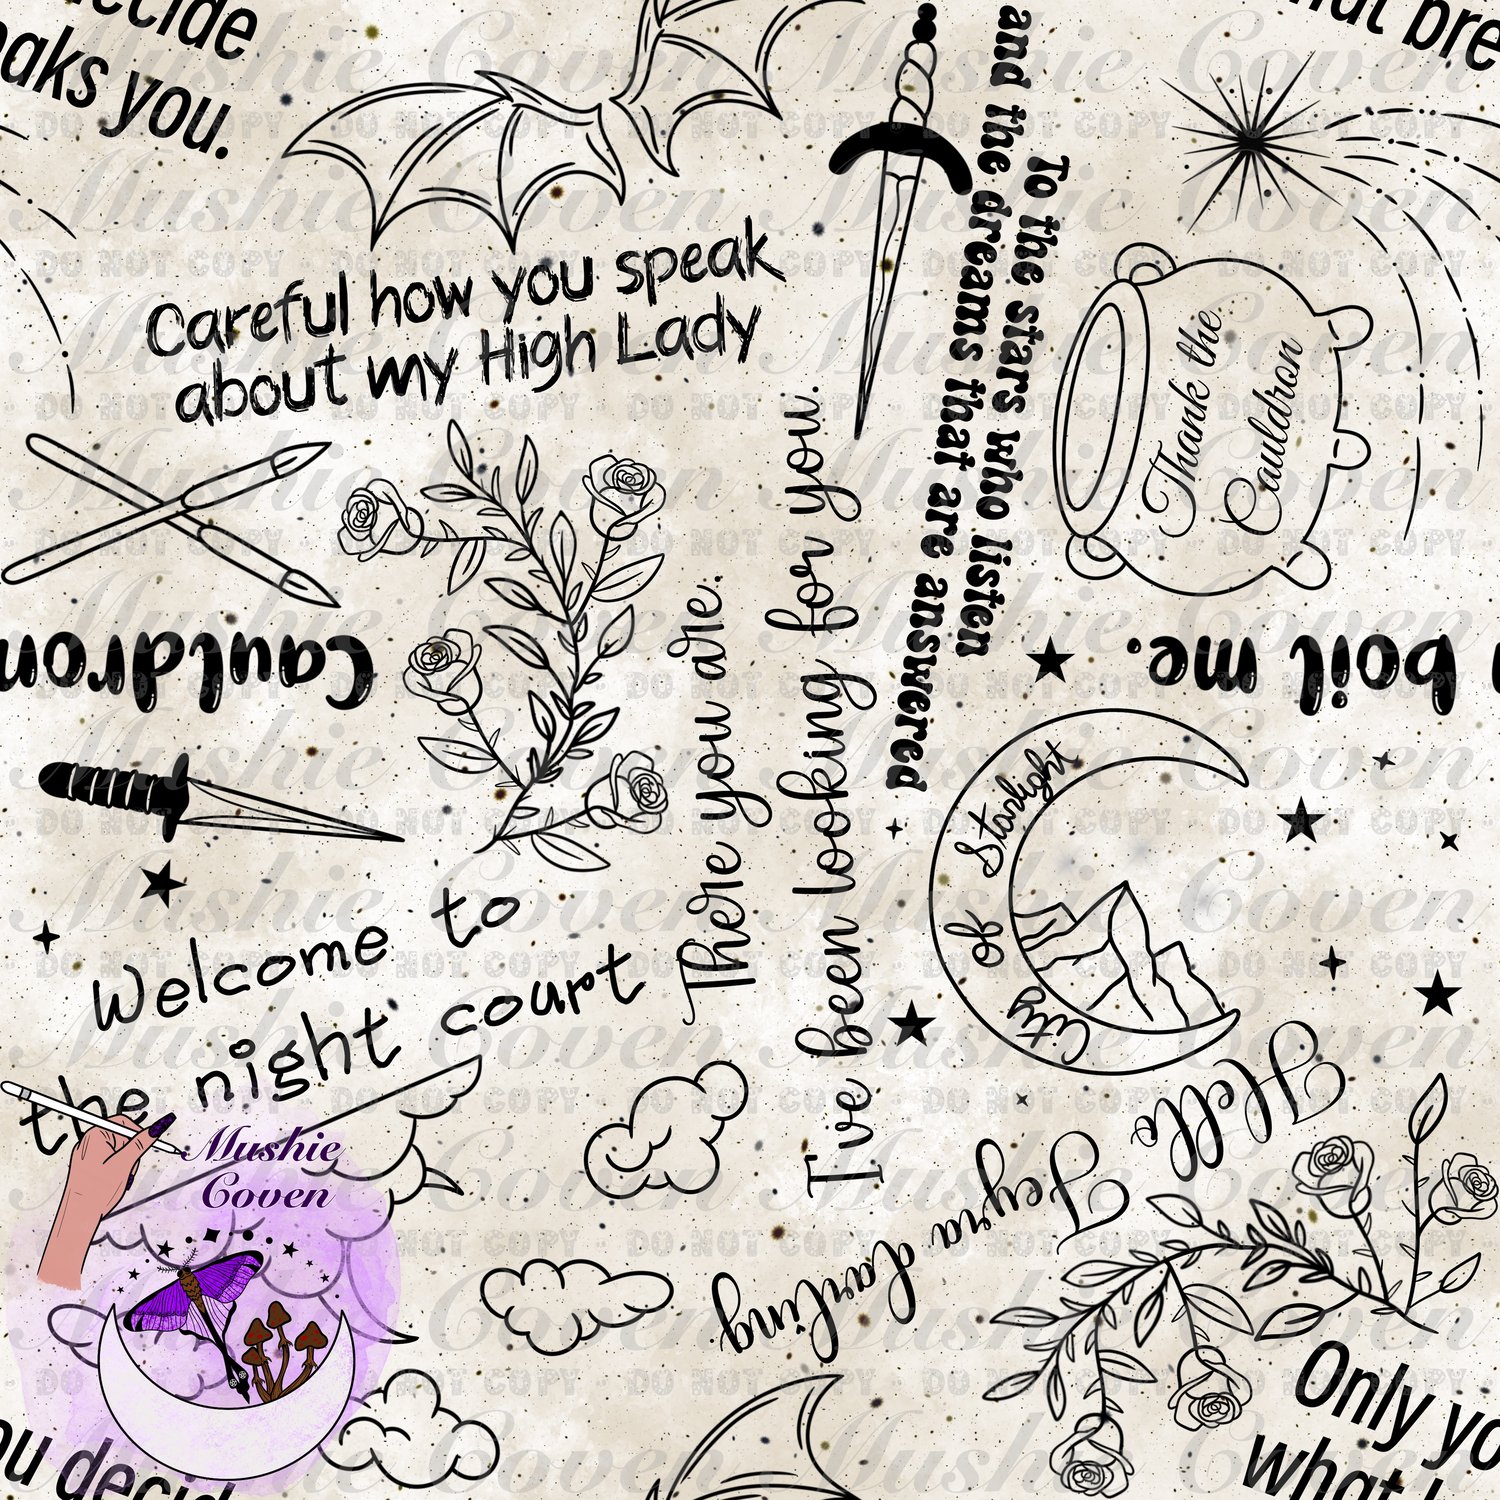 ecide
eaks you.
hat bre
Careful how you speak
about my High Lady
To the stars who listen
and the dreams that are answered
Thank the
Cauldron
There you are.
I've been looking for you.
cauldron
boil me.
City of Starlight
Welcome to
the night court
Hello
Feyra darling
Mushie
Coven
Only yo
What
ou decid
Mushie Coven
DO NOT COPY